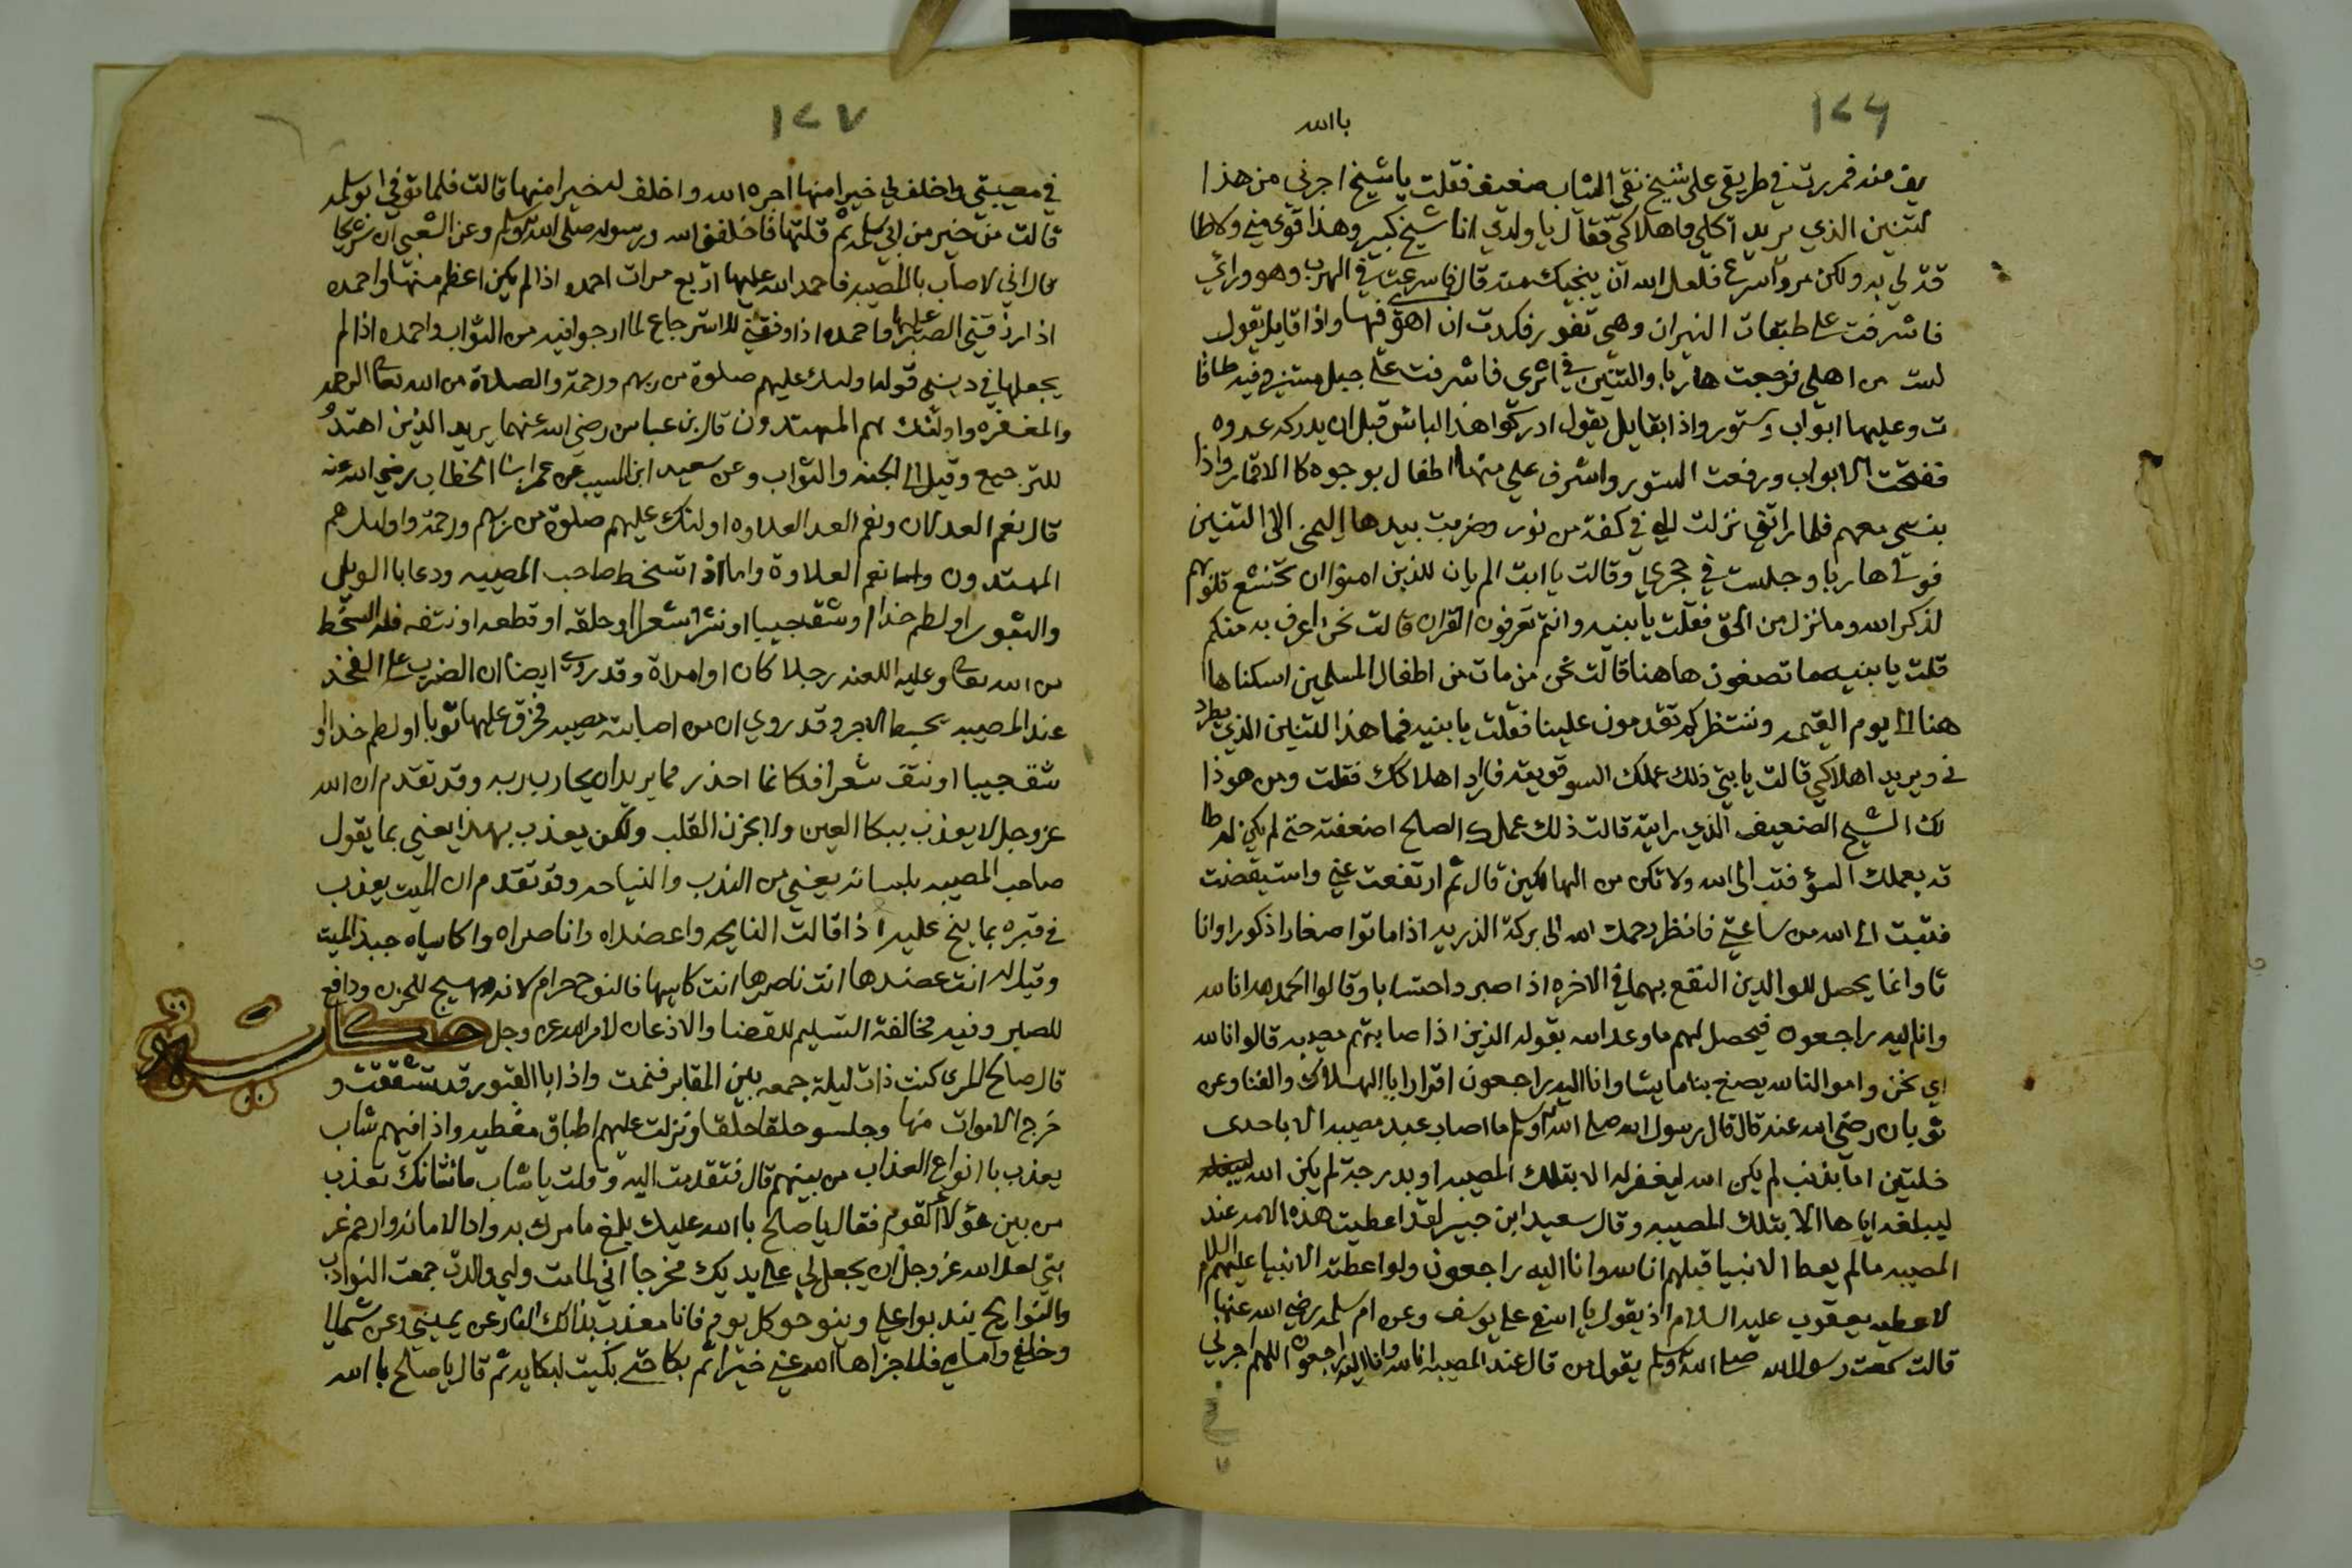 ١٢٦
باالله
يف منه فمررت في طريقي على شيخ نقي الثياب ضعيف فقلت يا شيخ اجرني من هذا
لتنين الذي يريد اكلي واهلاكي فقال يا ولدي انا شيخ كبير وهذا قوي مني ولا طا
قة لي به ولكن مر واسرع فلعل الله ان ينجيك منه قال فاسرعت في الهرب وهو وراي
فاشرفت على طبقات النيران وهي تفور فكدت ان اهوي فيها واذا قايل يقول
لست من اهلي فرجعت هاربا والتنين في اثري فاشرفت على جبل مستنير فيه طاقا
ت وعليها ابواب وستور واذا بقايل يقول ادركوا هذا البائس قبل ان يدركه عدوه
ففتحت الابواب ورفعت الستور واشرف علي منها اطفال بوجوه كا الاقمار واذا
بنتي معهم فلما راتني نزلت الي في كفة من نور وضربت بيدها اليمنى الى التنين
فولى هاربا وجلست في حجري وقالت يا ابت الم يان للذين امنوا ان تخشع قلوبهم
لذكر الله وما نزل من الحق فقلت يا بنيه وانتم تعرفون القران قالت نحن اعرف به منكم
قلت يا بنيه ما تصنعون ها هنا قالت نحن من مات من اطفال المسلمين اسكنا ها
هنا الى يوم القيمه وننتظركم تقدمون علينا فقلت يا بنيه فما هذا التنين الذي يطرد
ني ويريد اهلاكي قالت يا بتي ذلك عملك السو قويته فاراد اهلاكك فقلت ومن هو ذا
لك الشيخ الضعيف الذي رايته قالت ذلك عملك الصالح اضعفته حتى لم يكن له طا
قه بعملك السؤ فتب الى الله ولا تكن من الهالكين قال ثم ارتفعت عني واستيقضت
فتبت الى الله من ساعتي فانظر رحمك الله الى بركة الذريه اذا ماتوا صغارا ذكورا وانا
ثا وانما يحصل للوالدين النفع بهما في الاخره اذا صبر واحتسابا وقالوا الحمد لله انا لله
وانا ليه راجعون فيحصل لهم ما وعد الله بقوله الذين اذا صابتهم مصيبه قالوا انا لله
اي نحن وامو النا لله يصنع بنا ما يشا وانا اليه راجعون اقرارا باالهلاك والفنا وعن
ثوبان رضي الله عنه قال قال رسول الله صلى الله وسلم ما اصاب عبد مصيبه الا باحدى
خلتين اما بذنب لم يكن الله ليغفر له الا بتلك المصيبه او بدرجة لم يكن الله
ليبلغه اياها الا بتلك المصيبه وقال سعيد ابن جبير لقد اعطيت هذه الامه عند
المصيبه ما لم يعط الانبيا قبلهم انا لله وانا اليه راجعون ولو اعطته الانبيا عليهم السلام
لاعطيه يعقوب عليه السلام اذ يقول يا اسفى على يوسف وعن ام سلمه رضي الله عنها
قالت سمعت رسول الله صلى الله وسلم يقول من قال عند المصيبه انا لله وانا اليه راجعون اللهم اجرلي
في
١٢٧
في مصيبتي واخلف لي خيرا منها اجره الله واخلف له خيرا منها قالت فلما توفي ابو سلمه
قالت من خير من ابي سلمه ثم قلتها فاخلفني الله ورسوله صلى الله وسلم وعن الشعبي ان شريحا
قال اني لا صاب باالمصيبه فاحمد الله عليها اربع مرات احمده اذا لم يكن اعظم منها واحمده
اذا رزقني الصبر عليها واحمده اذا وفقني للاسترجاع لما ارجو افيه من الثواب واحمده اذا لم
يجعلها في ديني قوله اوليك عليهم صلوة من ربهم ورحمة والصلاة من الله تعالى الرحمه
والمغفره واولئك هم المهتدون قال بن عباس رضي الله عنهما يريد الذين اهتدو
للترجيع وقيل الى الجنه والثواب وعن سعيد ابن المسيب عن عمر ابن الخطاب رضي الله عنه
قال نعم العدلان ونعم العلاوه اولئك عليهم صلوة من ربهم ورحمة واوليك هم
المهتدون نعم العلاوة واما اذا تسخط صاحب المصيبه ودعا با الويل
والثبور او لطم خدا او شق جيبا او نشر شعرا او حلقه او قطعه او نتفه فله السخط
من الله تعالى وعليه اللعنه رجلا كان او امراة وقد روي ايضا ان الضرب على الفخذ
عند المصيبه يحبط الاجر وقد روي ان من اصابته مصيبه فخرق عليها ثوبا او لطم خدا او
شق جيبا او نتف شعرا فكانما اخذ رمحا يريد ان يحارب ربه وقد تقدم ان الله
عز وجل لا يعذب ببكا العين ولا بحزن القلب ولكن يعذب بهذا يعني بما يقول
صاحب المصيبه بلسانه يعني من الندب والنياحه وقد تقدم ان الميت يعذب
في قبره بما ينح عليه اذا قالت النايحه واعضداه واناصراه واكاسياه جبذ الميت
وقيل له انت عضدها انت ناصرها انت كاسيها فالنوح حرام لانه مهيج للحزن ودافع
للصبر وفيه مخالفة التسليم للقضا والاذعان لامر الله عز وجل حكايه
قال صالح المري كنت ذات ليلة جمعه بين المقابر فنمت واذا باالقبور قد تشققت و
خرج الاموات منها وجلسو حلقا حلقا ونزلت عليهم اطباق مغطيه واذا فيهم شاب
يعذب باانواع العذاب من بينهم قال فتقدمت اليه وقلت يا شاب ما شانك تعذب
من بين هؤلاء القوم فقال يا صالح باالله عليك بلغ ما امرك به واد الامانه وارحم غر
بتي لعل الله عز وجل ان يجعل لي على يديك مخرجا اني لما مت ولي والدة جمعت النوادب
والنوايح يندبوا علي وينوحو كل يوم فانا معذب بذالك النار عن يميني وعن شمالي
وخلفي وامامي فلا جزاها الله عني خيرا ثم بكا حتى بكيت لبكايه ثم قال يا صالح باالله